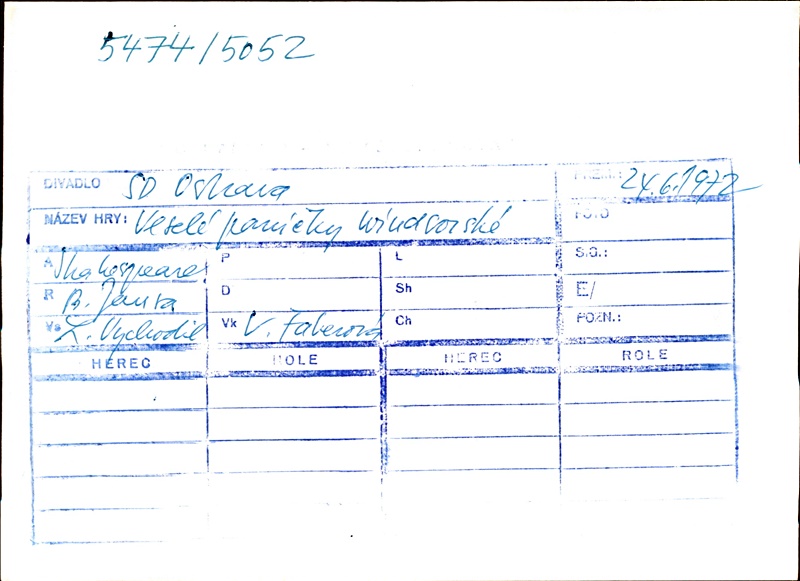 5474/5052
DIVADLO SD Ostrava PREM.: 24.6.1972
NÁZEV HRY: Veselé paničky windsorské FOTO
A Shakespeare P L S.G.:
R A. Janura D Sh E/
Vs L. Vychodil Vk V. Faberová Ch POZN.:
HEREC ROLE HEREC ROLE